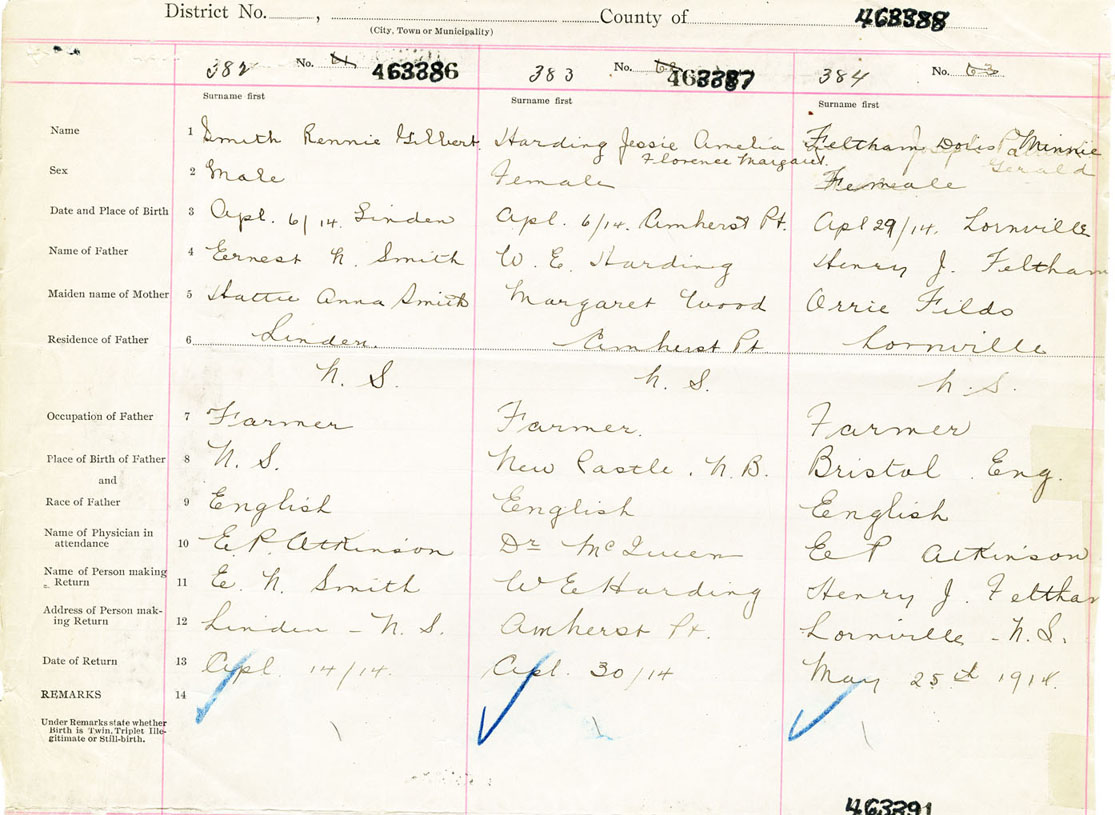 District No. , County of 463388
(City, Town or Municipality)
382 No. 61 463386 383 No. 62 463387 384 No. 63
Surname first Surname first Surname first
Name 1 Smith Rennie Gilbert. Harding Jessie Amelia Feltham Doris Minnie
Florence Margaret. Gerald
Sex 2 Male Female Female
Date and Place of Birth 3 Apl. 6/14. Linden Apl. 6/14. Amherst Pt. Apl 29/14. Lornville
Name of Father 4 Ernest N. Smith W. E. Harding Henry J. Feltham
Maiden name of Mother 5 Hattie Anna Smith Margaret Wood Orrie Filds
Residence of Father 6 Linden. Amherst Pt. Lornville
N. S. N. S. N. S.
Occupation of Father 7 Farmer Farmer. Farmer
Place of Birth of Father 8 N. S. New Castle. N. B. Bristol Eng.
and
Race of Father 9 English English English
Name of Physician in
attendance 10 E. P. Atkinson Dr McQueen E P Atkinson
Name of Person making
Return 11 E. N. Smith W E Harding Henry J. Feltham
Address of Person mak-
ing Return 12 Linden - N. S. Amherst Pt. Lornville - N. S.
Date of Return 13 Apl. 14/14. Apl. 30/14 May 25th 1914.
REMARKS 14
Under Remarks state whether
Birth is Twin, Triplet Ille-
gitimate or Still-birth.
463391